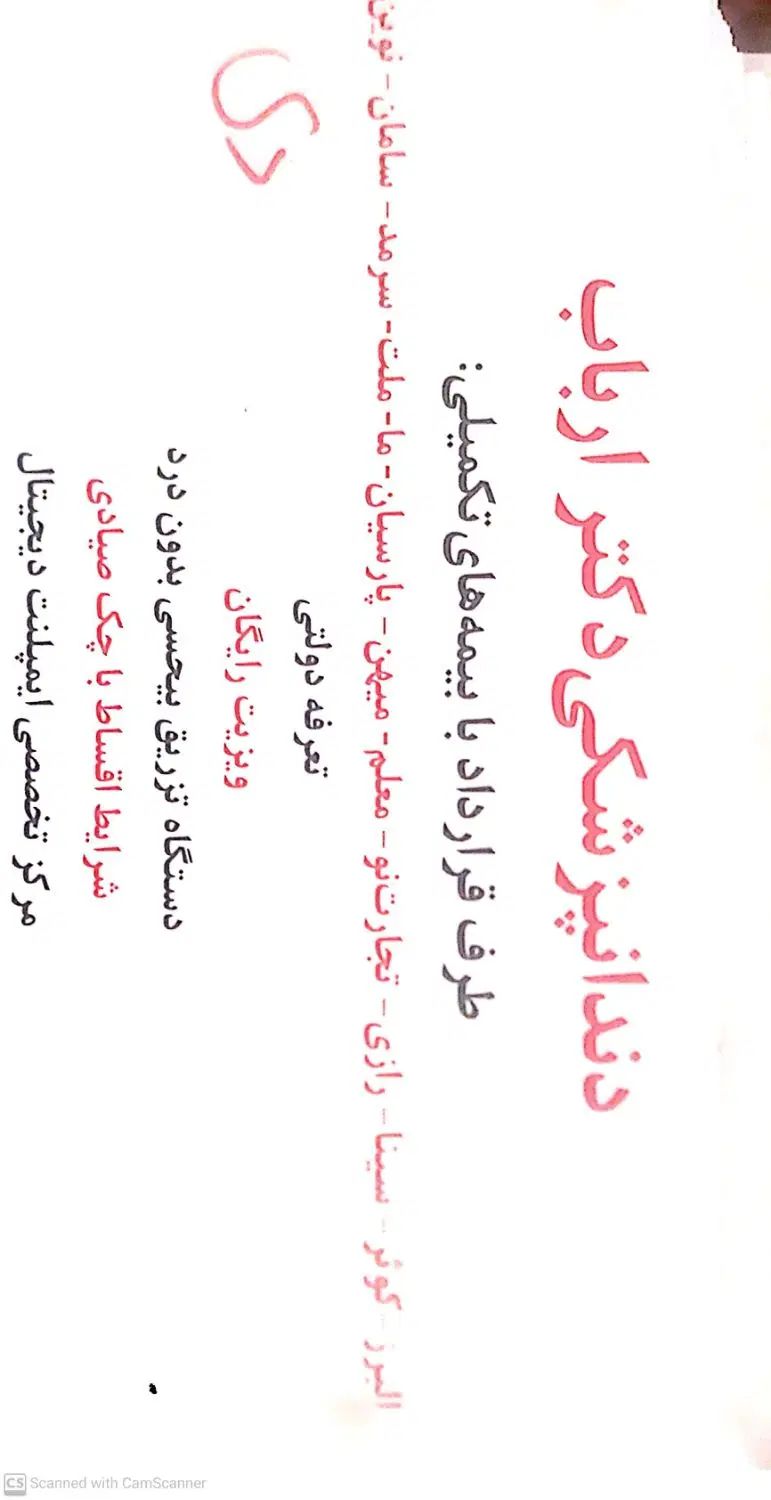 دندانپزشکی دکتر ارباب
طرف قرارداد با بیمه‌های تکمیلی:
البرز - کوثر - سینا - رازی - تجارت‌نو - معلم - میهن - پارسیان - ما - ملت - سرمد - سامان - نوین
دی
تعرفه دولتی
ویزیت رایگان
دستگاه تزریق بیحسی بدون درد
شرایط اقساط با چک صیادی
مرکز تخصصی ایمپلنت دیجیتال
CS Scanned with CamScanner